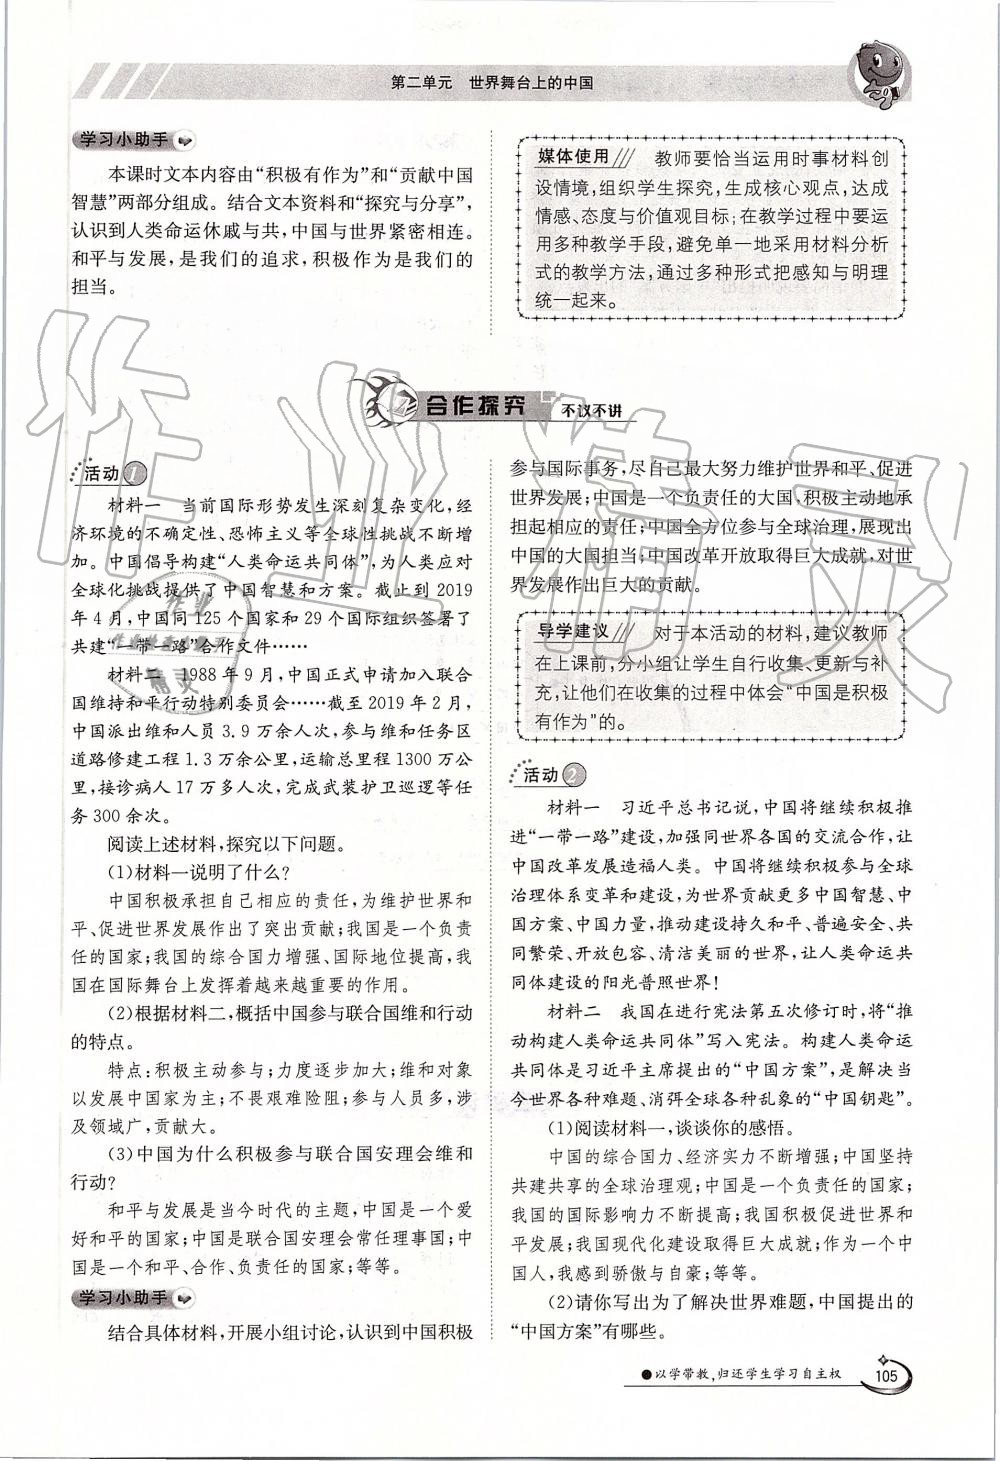 第二单元　世界舞台上的中国
学习小助手
本课时文本内容由“积极有作为”和“贡献中国
智慧”两部分组成。结合文本资料和“探究与分享”，
认识到人类命运休戚与共，中国与世界紧密相连。
和平与发展，是我们的追求，积极作为是我们的
担当。
媒体使用　教师要恰当运用时事材料创
设情境，组织学生探究，生成核心观点，达成
情感、态度与价值观目标；在教学过程中要运
用多种教学手段，避免单一地采用材料分析
式的教学方法，通过多种形式把感知与明理
统一起来。
合作探究　不议不讲
活动1
材料一　当前国际形势发生深刻复杂变化，经
济环境的不确定性、恐怖主义等全球性挑战不断增
加。中国倡导构建“人类命运共同体”，为人类应对
全球化挑战提供了中国智慧和方案。截止到 2019
年 4 月，中国同 125 个国家和 29 个国际组织签署了
共建“一带一路”合作文件……
材料二　1988 年 9 月，中国正式申请加入联合
国维持和平行动特别委员会……截至 2019 年 2 月，
中国派出维和人员 3.9 万余人次，参与维和任务区
道路修建工程 1.3 万余公里，运输总里程 1300 万公
里，接诊病人 17 万多人次，完成武装护卫巡逻等任
务 300 余次。
阅读上述材料，探究以下问题。
(1)材料一说明了什么？
中国积极承担自己相应的责任，为维护世界和
平、促进世界发展作出了突出贡献；我国是一个负责
任的国家；我国的综合国力增强、国际地位提高，我
国在国际舞台上发挥着越来越重要的作用。
(2)根据材料二，概括中国参与联合国维和行动
的特点。
特点：积极主动参与；力度逐步加大；维和对象
以发展中国家为主；不畏艰难险阻；参与人员多，涉
及领域广，贡献大。
(3)中国为什么积极参与联合国安理会维和
行动？
和平与发展是当今时代的主题，中国是一个爱
好和平的国家；中国是联合国安理会常任理事国；中
国是一个和平、合作、负责任的国家；等等。
学习小助手
结合具体材料，开展小组讨论，认识到中国积极
参与国际事务，尽自己最大努力维护世界和平、促进
世界发展；中国是一个负责任的大国，积极主动地承
担起相应的责任；中国全方位参与全球治理，展现出
中国的大国担当；中国改革开放取得巨大成就，对世
界发展作出巨大的贡献。
导学建议　对于本活动的材料，建议教师
在上课前，分小组让学生自行收集、更新与补
充，让他们在收集的过程中体会“中国是积极
有作为”的。
活动2
材料一　习近平总书记说，中国将继续积极推
进“一带一路”建设，加强同世界各国的交流合作，让
中国改革发展造福人类。中国将继续积极参与全球
治理体系变革和建设，为世界贡献更多中国智慧、中
国方案、中国力量，推动建设持久和平、普遍安全、共
同繁荣、开放包容、清洁美丽的世界，让人类命运共
同体建设的阳光普照世界！
材料二　我国在进行宪法第五次修订时，将“推
动构建人类命运共同体”写入宪法。构建人类命运
共同体是习近平主席提出的“中国方案”，是解决当
今世界各种难题、消弭全球各种乱象的“中国钥匙”。
(1)阅读材料一，谈谈你的感悟。
中国的综合国力、经济实力不断增强；中国坚持
共建共享的全球治理观；中国是一个负责任的国家；
我国的国际影响力不断提高；我国积极促进世界和
平发展；我国现代化建设取得巨大成就；作为一个中
国人，我感到骄傲与自豪；等等。
(2)请你写出为了解决世界难题，中国提出的
“中国方案”有哪些。
●以学带教，归还学生学习自主权　105
作业精灵